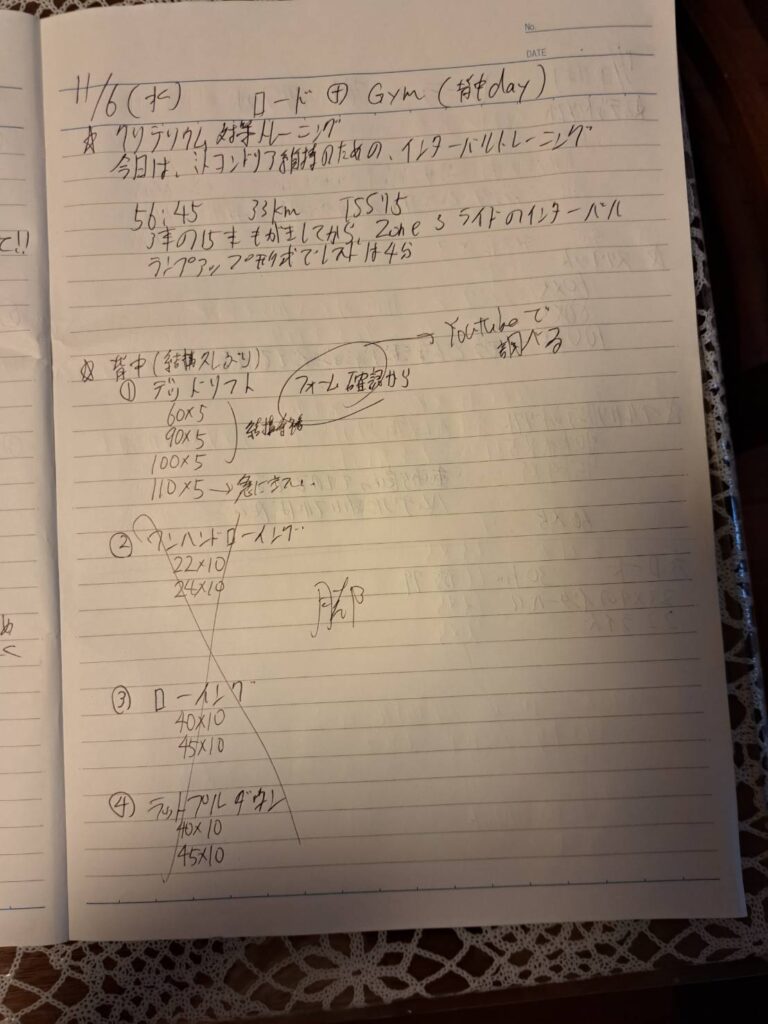 No.
DATE
11/6(水) ロード ⊕ Gym(背中day)
☆ クリテリウム対策トレーニング
今日は、ミトコンドリア維持のための、インターバルトレーニング
56:45 33km TSS75
の15 もがきしてから、Zone 3 ライドのインターバル
ランプアップ形式でレストは4分
☆ 背中(結構久しぶり)
→ Youtubeで
調べる
① デッドリフト フォーム確認から
60×5
90×5 結構
100×5
110×5 → 急に
② ワンハンドローイング
22×10
24×10
③ ローイング
40×10
45×10
④ ラットプルダウン
40×10
45×10
て!!
め
く